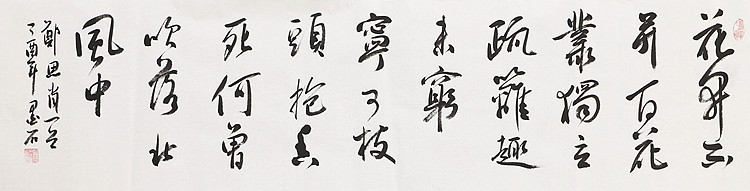 花開不
并百花
叢獨立
疏籬趣
未窮
寧可枝
頭抱香
死何曾
吹落北
風中
鄭思肖一首
丁酉年墨石